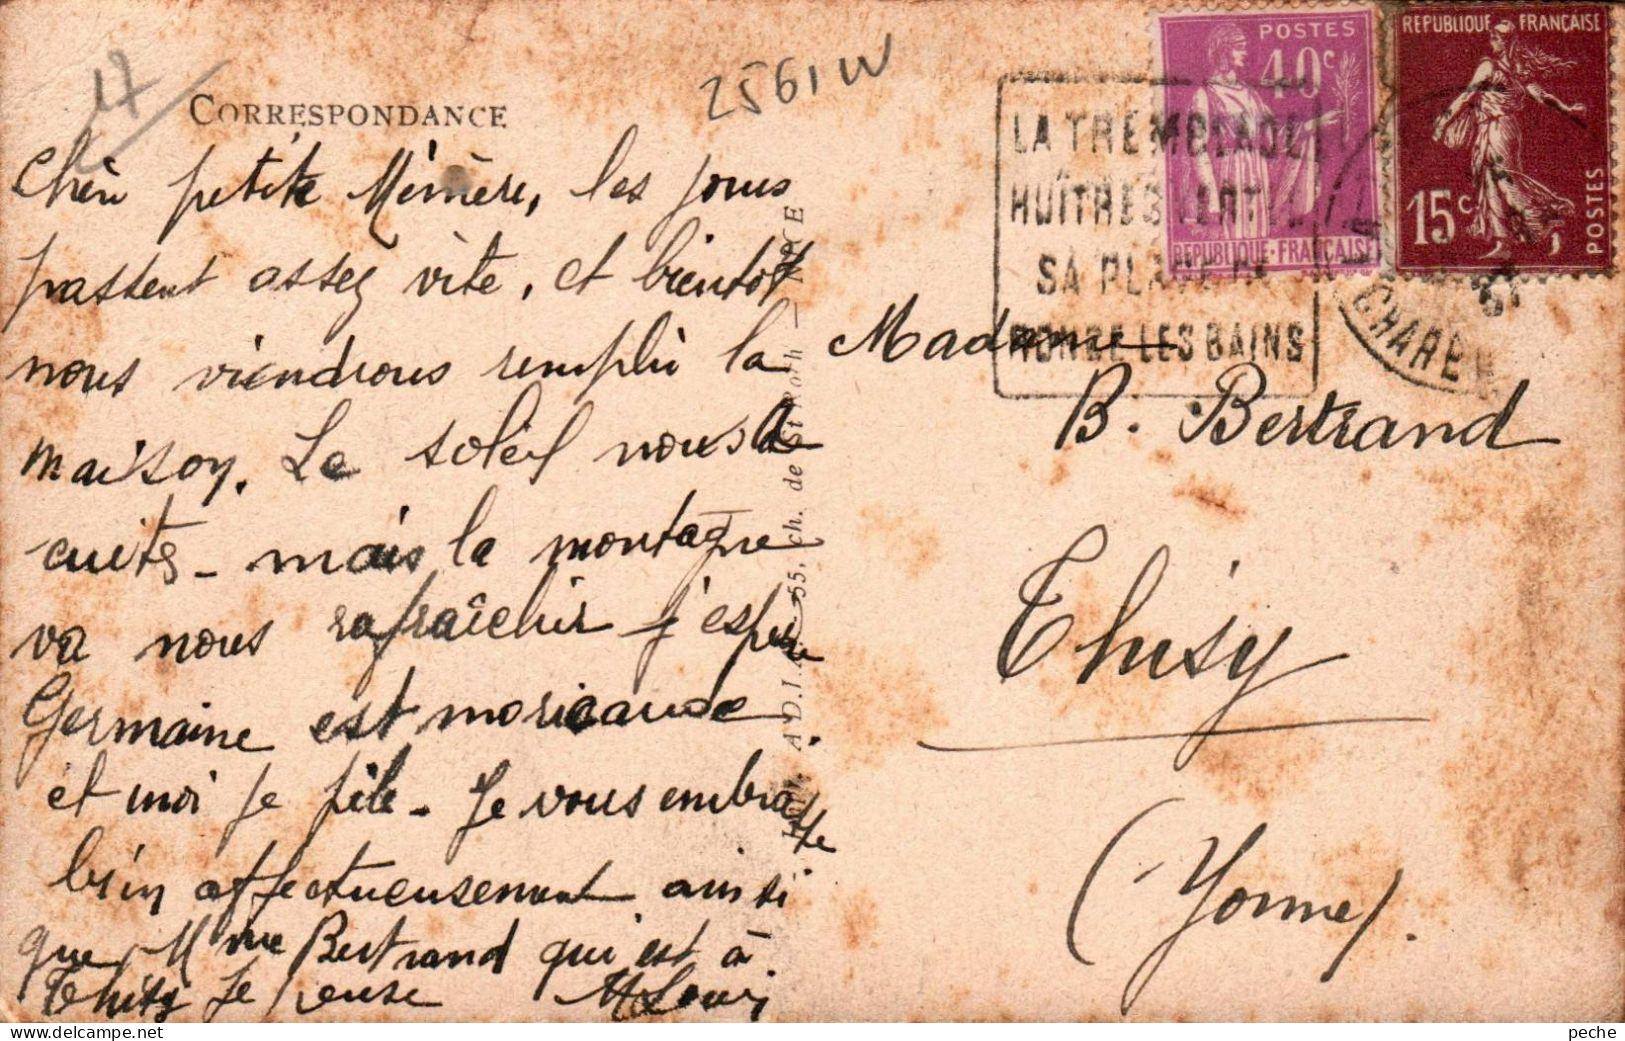 17
2561W
CORRESPONDANCE
Chère petite Mémère, les jours
passent assez vite, et bientôt
nous viendrons remplir la
maison. Le soleil nous a
cuits - mais la montagne
va nous rafraîchir j'espère
Germaine est moricaude
et moi je pèle - Je vous embrasse
bien affectueusement ainsi
que Mme Bertrand qui est à
Thisy je pense
POSTES
40c
REPUBLIQUE-FRANÇAISE
REPUBLIQUE FRANÇAISE
15c
POSTES
LA TREMBLADE
HUÎTRES VERTES
SA PLAGE
RONCE LES BAINS
Madame
B. Bertrand
Thisy
(Yonne).
55, ch. de
peche